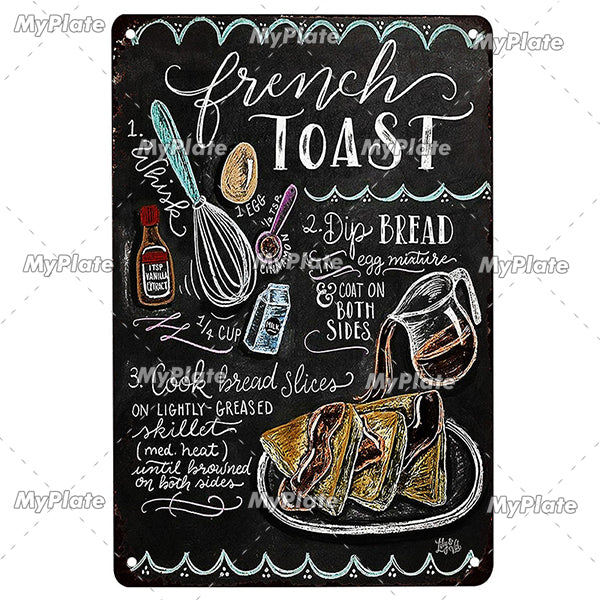 MyPlate MyPlate MyPlate
french
TOAST
MyPlate MyPlate MyPlate
1.
Whisk
1 EGG
1/2 TSP.
CINNAMON
1 TSP
VANILLA
EXTRACT
1/4 CUP
MILK
2. Dip BREAD
in egg mixture
& COAT ON
BOTH
SIDES
MyPlate MyPlate MyPlate
3. Cook bread slices
ON LIGHTLY-GREASED
skillet
(med. heat)
until browned
on both sides
MyPlate MyPlate MyPlate
MyPlate MyPlate MyPlate